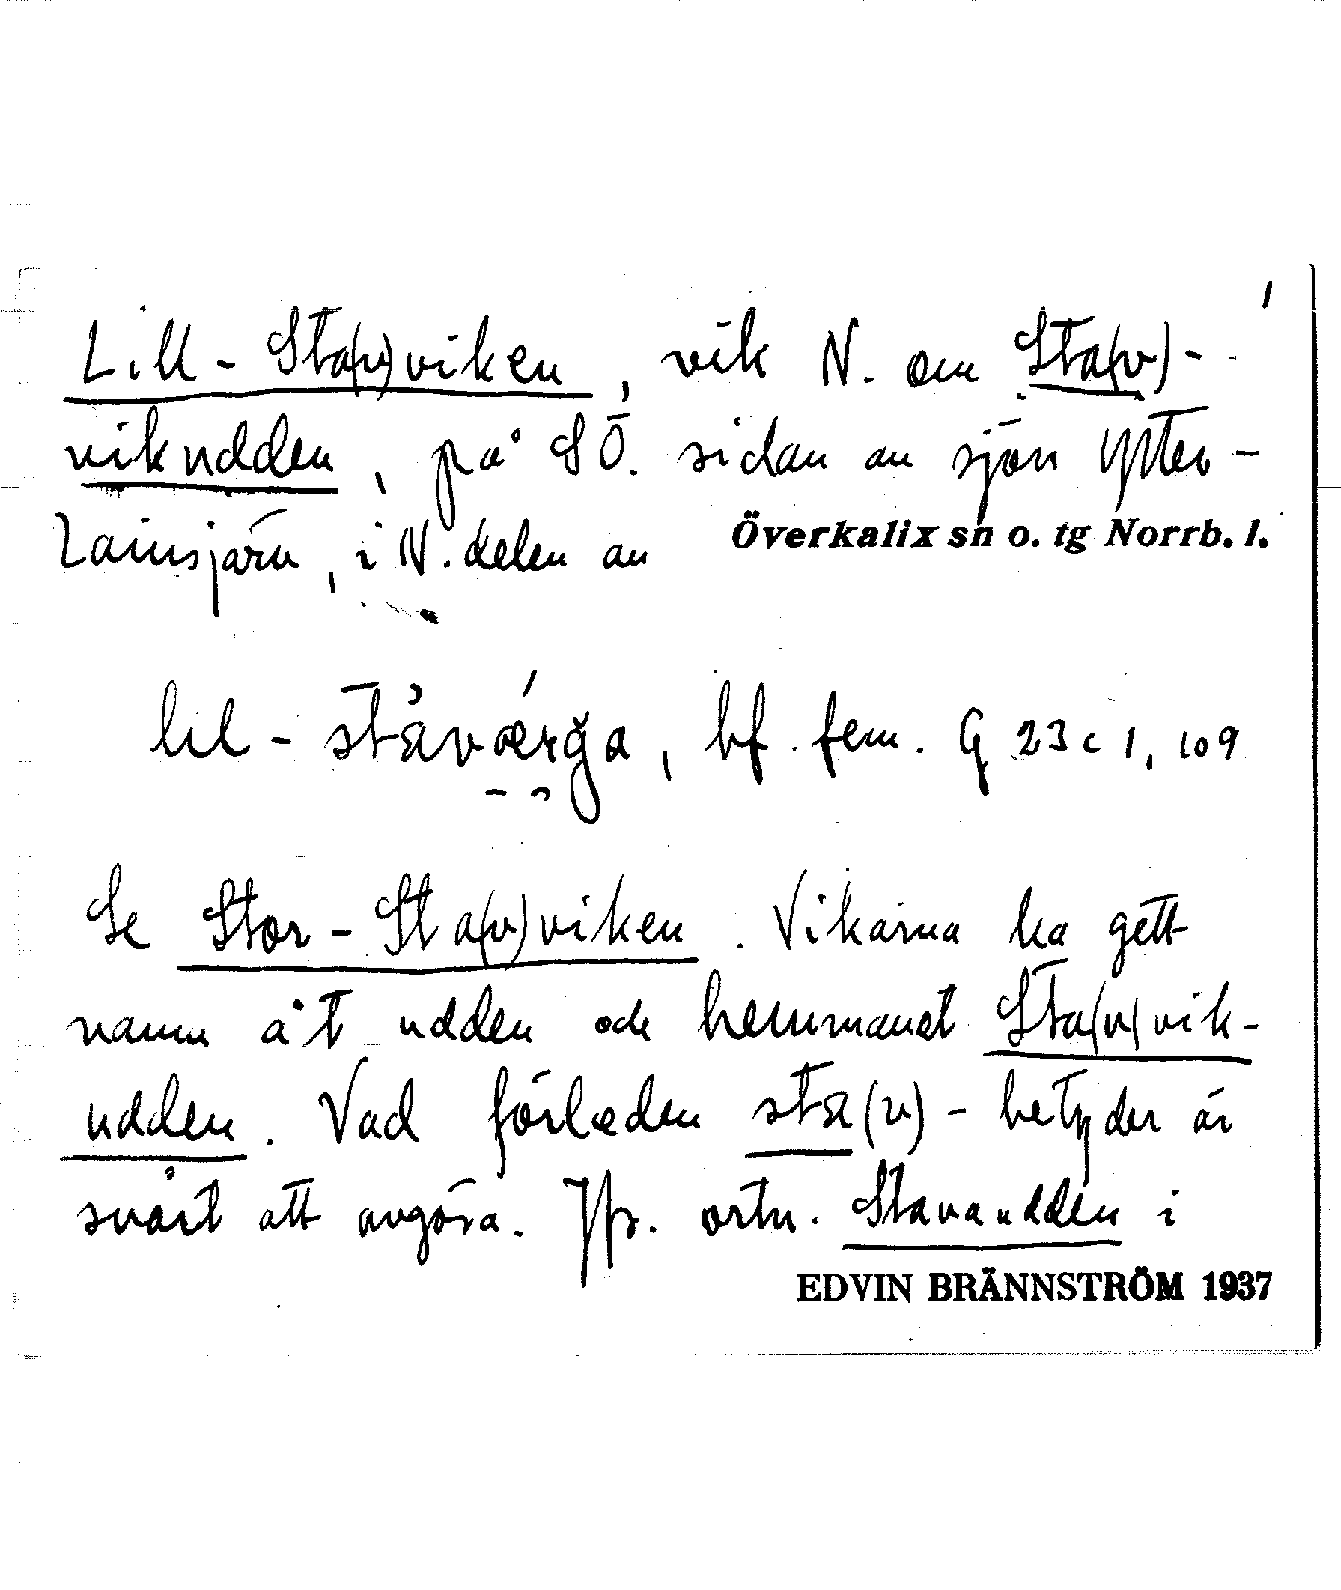 1
Lill-Sta(v)viken, vik N. om Sta(v)-
vikudden, på SÖ. sidan av sjön Ytter-
Lainsjärv, i N. delen av Överkalix sn o. tg Norrb. l.
bf. fem. G 23 c 1, 109
Se Stor-Sta(v)viken. Vikarna ha gett
namn åt udden och hemmanet Sta(v)vik-
udden. Vad förleden sta(v)- betyder är
svårt att avgöra. Jfr. ortn. Stavaudden i
EDVIN BRÄNNSTRÖM 1937